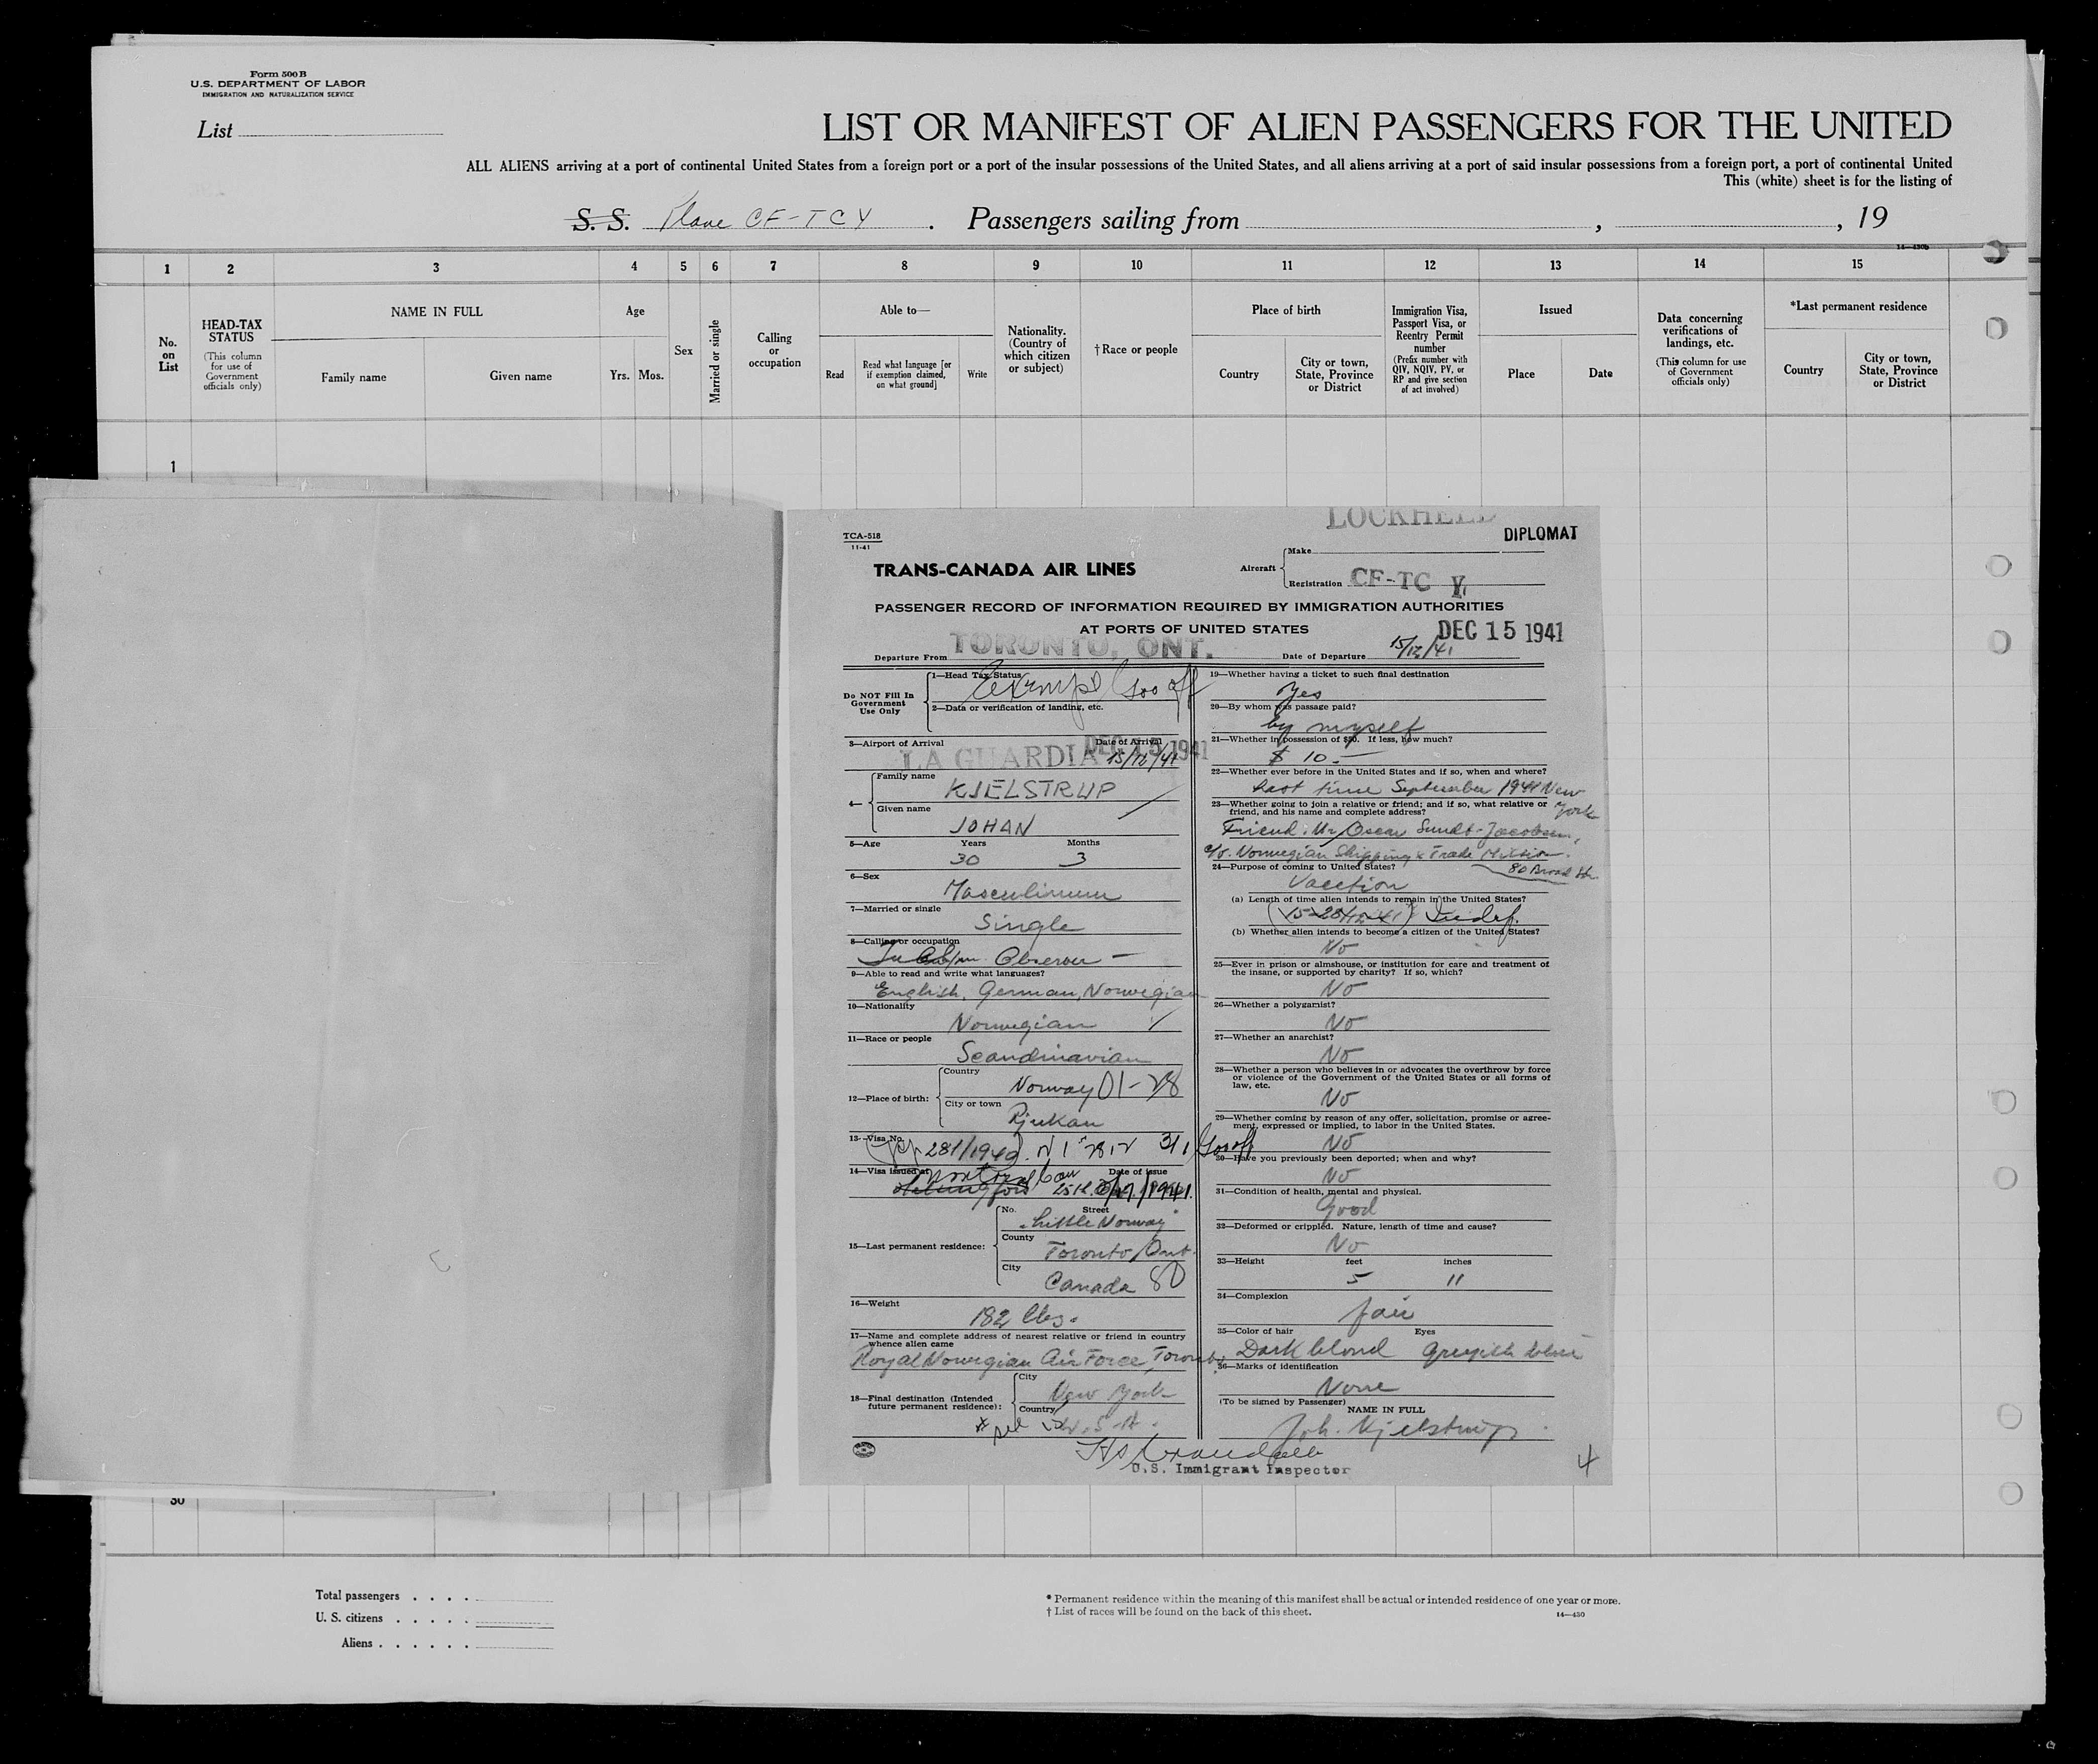 Form 500 B
U.S. DEPARTMENT OF LABOR
IMMIGRATION AND NATURALIZATION SERVICE
List
LIST OR MANIFEST OF ALIEN PASSENGERS FOR THE UNITED
ALL ALIENS arriving at a port of continental United States from a foreign port or a port of the insular possessions of the United States, and all aliens arriving at a port of said insular possessions from a foreign port, a port of continental United
This (white) sheet is for the listing of
S. S. Plane CF-TCY. Passengers sailing from , , 19
14—430b
1 2 3 4 5 6 7 8 9 10 11 12 13 14 15
No. on List
HEAD-TAX STATUS
(This column for use of Government officials only)
NAME IN FULL
Family name
Given name
Age
Yrs. Mos.
Sex
Married or single
Calling or occupation
Able to—
Read
Read what language [or if exemption claimed, on what ground]
Write
Nationality. (Country of which citizen or subject)
†Race or people
Place of birth
Country
City or town, State, Province or District
Immigration Visa, Passport Visa, or Reentry Permit number
(Prefix number with QIV, NQIV, PV, or RP and give section of act involved)
Issued
Place
Date
Data concerning verifications of landings, etc.
(This column for use of Government officials only)
*Last permanent residence
Country
City or town, State, Province or District
1
LOCKHEED
DIPLOMAT
TCA-518
11-41
TRANS-CANADA AIR LINES
Aircraft
Make
Registration CF-TC Y
PASSENGER RECORD OF INFORMATION REQUIRED BY IMMIGRATION AUTHORITIES
AT PORTS OF UNITED STATES
DEC 15 1941
Departure From TORONTO, ONT.
Date of Departure 15/12/41
Do NOT Fill In Government Use Only
1—Head Tax Status Exempt Gov off
2—Data or verification of landing, etc.
3—Airport of Arrival LA GUARDIA
Date of Arrival DEC 15 1941 15/12/41
4— Family name KJELSTRUP
Given name JOHAN
5—Age Years 30 Months 3
6—Sex Masculinum
7—Married or single Single
8—Calling or occupation Observer —
9—Able to read and write what languages?
English, German, Norwegian
10—Nationality Norwegian
11—Race or people Scandinavian
12—Place of birth: Country Norway 01-28
City or town Rjukan
13—Visa No. 281/1940 311 Gov off
14—Visa issued at Montreal Can Date of issue 1941.
15—Last permanent residence: No. Street "Little Norway"
County Toronto, Ont.
City Canada 80
16—Weight 182 lbs.
17—Name and complete address of nearest relative or friend in country whence alien came
Royal Norwegian Air Force, Toronto
18—Final destination (Intended future permanent residence): City New York
Country U.S.A.
19—Whether having a ticket to such final destination
Yes
20—By whom was passage paid?
by myself
21—Whether in possession of $50. If less, how much?
$ 10.—
22—Whether ever before in the United States and if so, when and where?
Last time September 1941 New York
23—Whether going to join a relative or friend; and if so, what relative or friend, and his name and complete address?
Friend: Mr Oscar Sundt-Jacobsen,
c/o. Norwegian Shipping & Trade Mission.
80 Broad Str.
24—Purpose of coming to United States?
Vacation
(a) Length of time alien intends to remain in the United States?
(15-28/12-41) Indef.
(b) Whether alien intends to become a citizen of the United States?
No
25—Ever in prison or almshouse, or institution for care and treatment of the insane, or supported by charity? If so, which?
No
26—Whether a polygamist?
No
27—Whether an anarchist?
No
28—Whether a person who believes in or advocates the overthrow by force or violence of the Government of the United States or all forms of law, etc.
No
29—Whether coming by reason of any offer, solicitation, promise or agreement, expressed or implied, to labor in the United States.
No
30—Have you previously been deported; when and why?
No
31—Condition of health, mental and physical.
Good
32—Deformed or crippled. Nature, length of time and cause?
No
33—Height feet 5 inches 11
34—Complexion
fair
35—Color of hair Dark blond Eyes greyish blue
36—Marks of identification
None
(To be signed by Passenger)
NAME IN FULL
Joh. Kjelstrup.
U.S. Immigrant Inspector
4
30
Total passengers
U. S. citizens
Aliens
* Permanent residence within the meaning of this manifest shall be actual or intended residence of one year or more.
† List of races will be found on the back of this sheet.
14—430